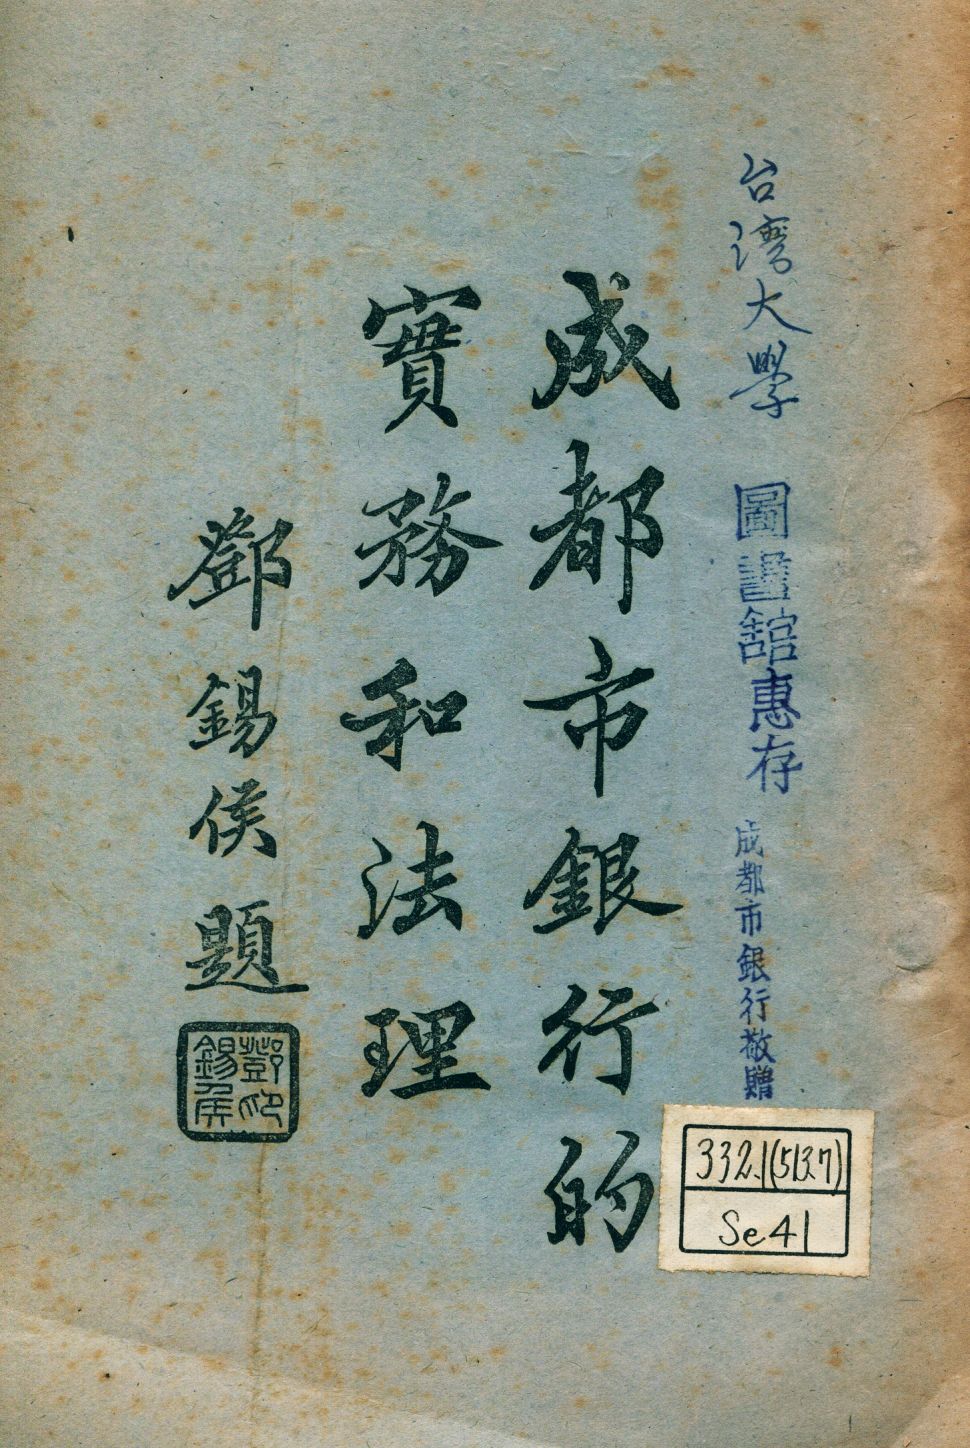 台灣大學 圖書館惠存 成都市銀行敬贈
成都市銀行的
實務和法理
鄧錫侯題
鄧印
錫侯
332.1(5137)
Se41